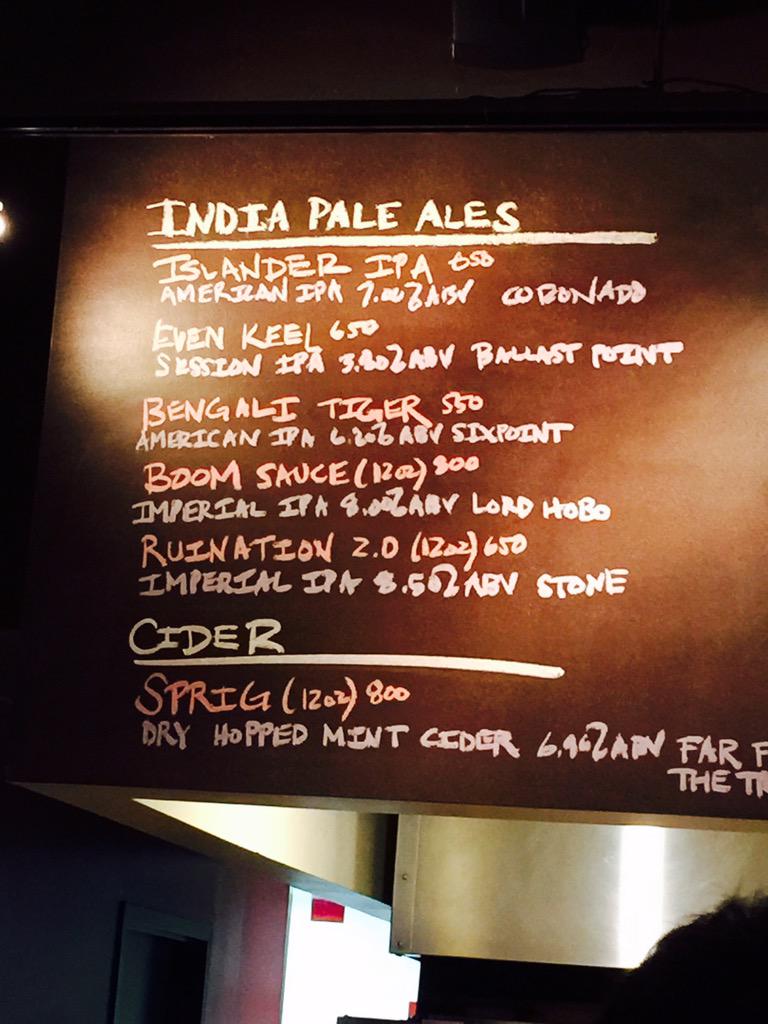 INDIA PALE ALES
ISLANDER IPA 650
AMERICAN IPA 7.00% ABV CORONADO
EVEN KEEL 650
SESSION IPA 3.80% ABV BALLAST POINT
BENGALI TIGER 550
AMERICAN IPA 6.20% ABV SIXPOINT
BOOM SAUCE (12oz) 800
IMPERIAL IPA 8.00% ABV LORD HOBO
RUINATION 2.0 (12oz) 650
IMPERIAL IPA 8.50% ABV STONE
CIDER
SPRIG (12oz) 800
DRY HOPPED MINT CIDER ABV FAR F
THE TR